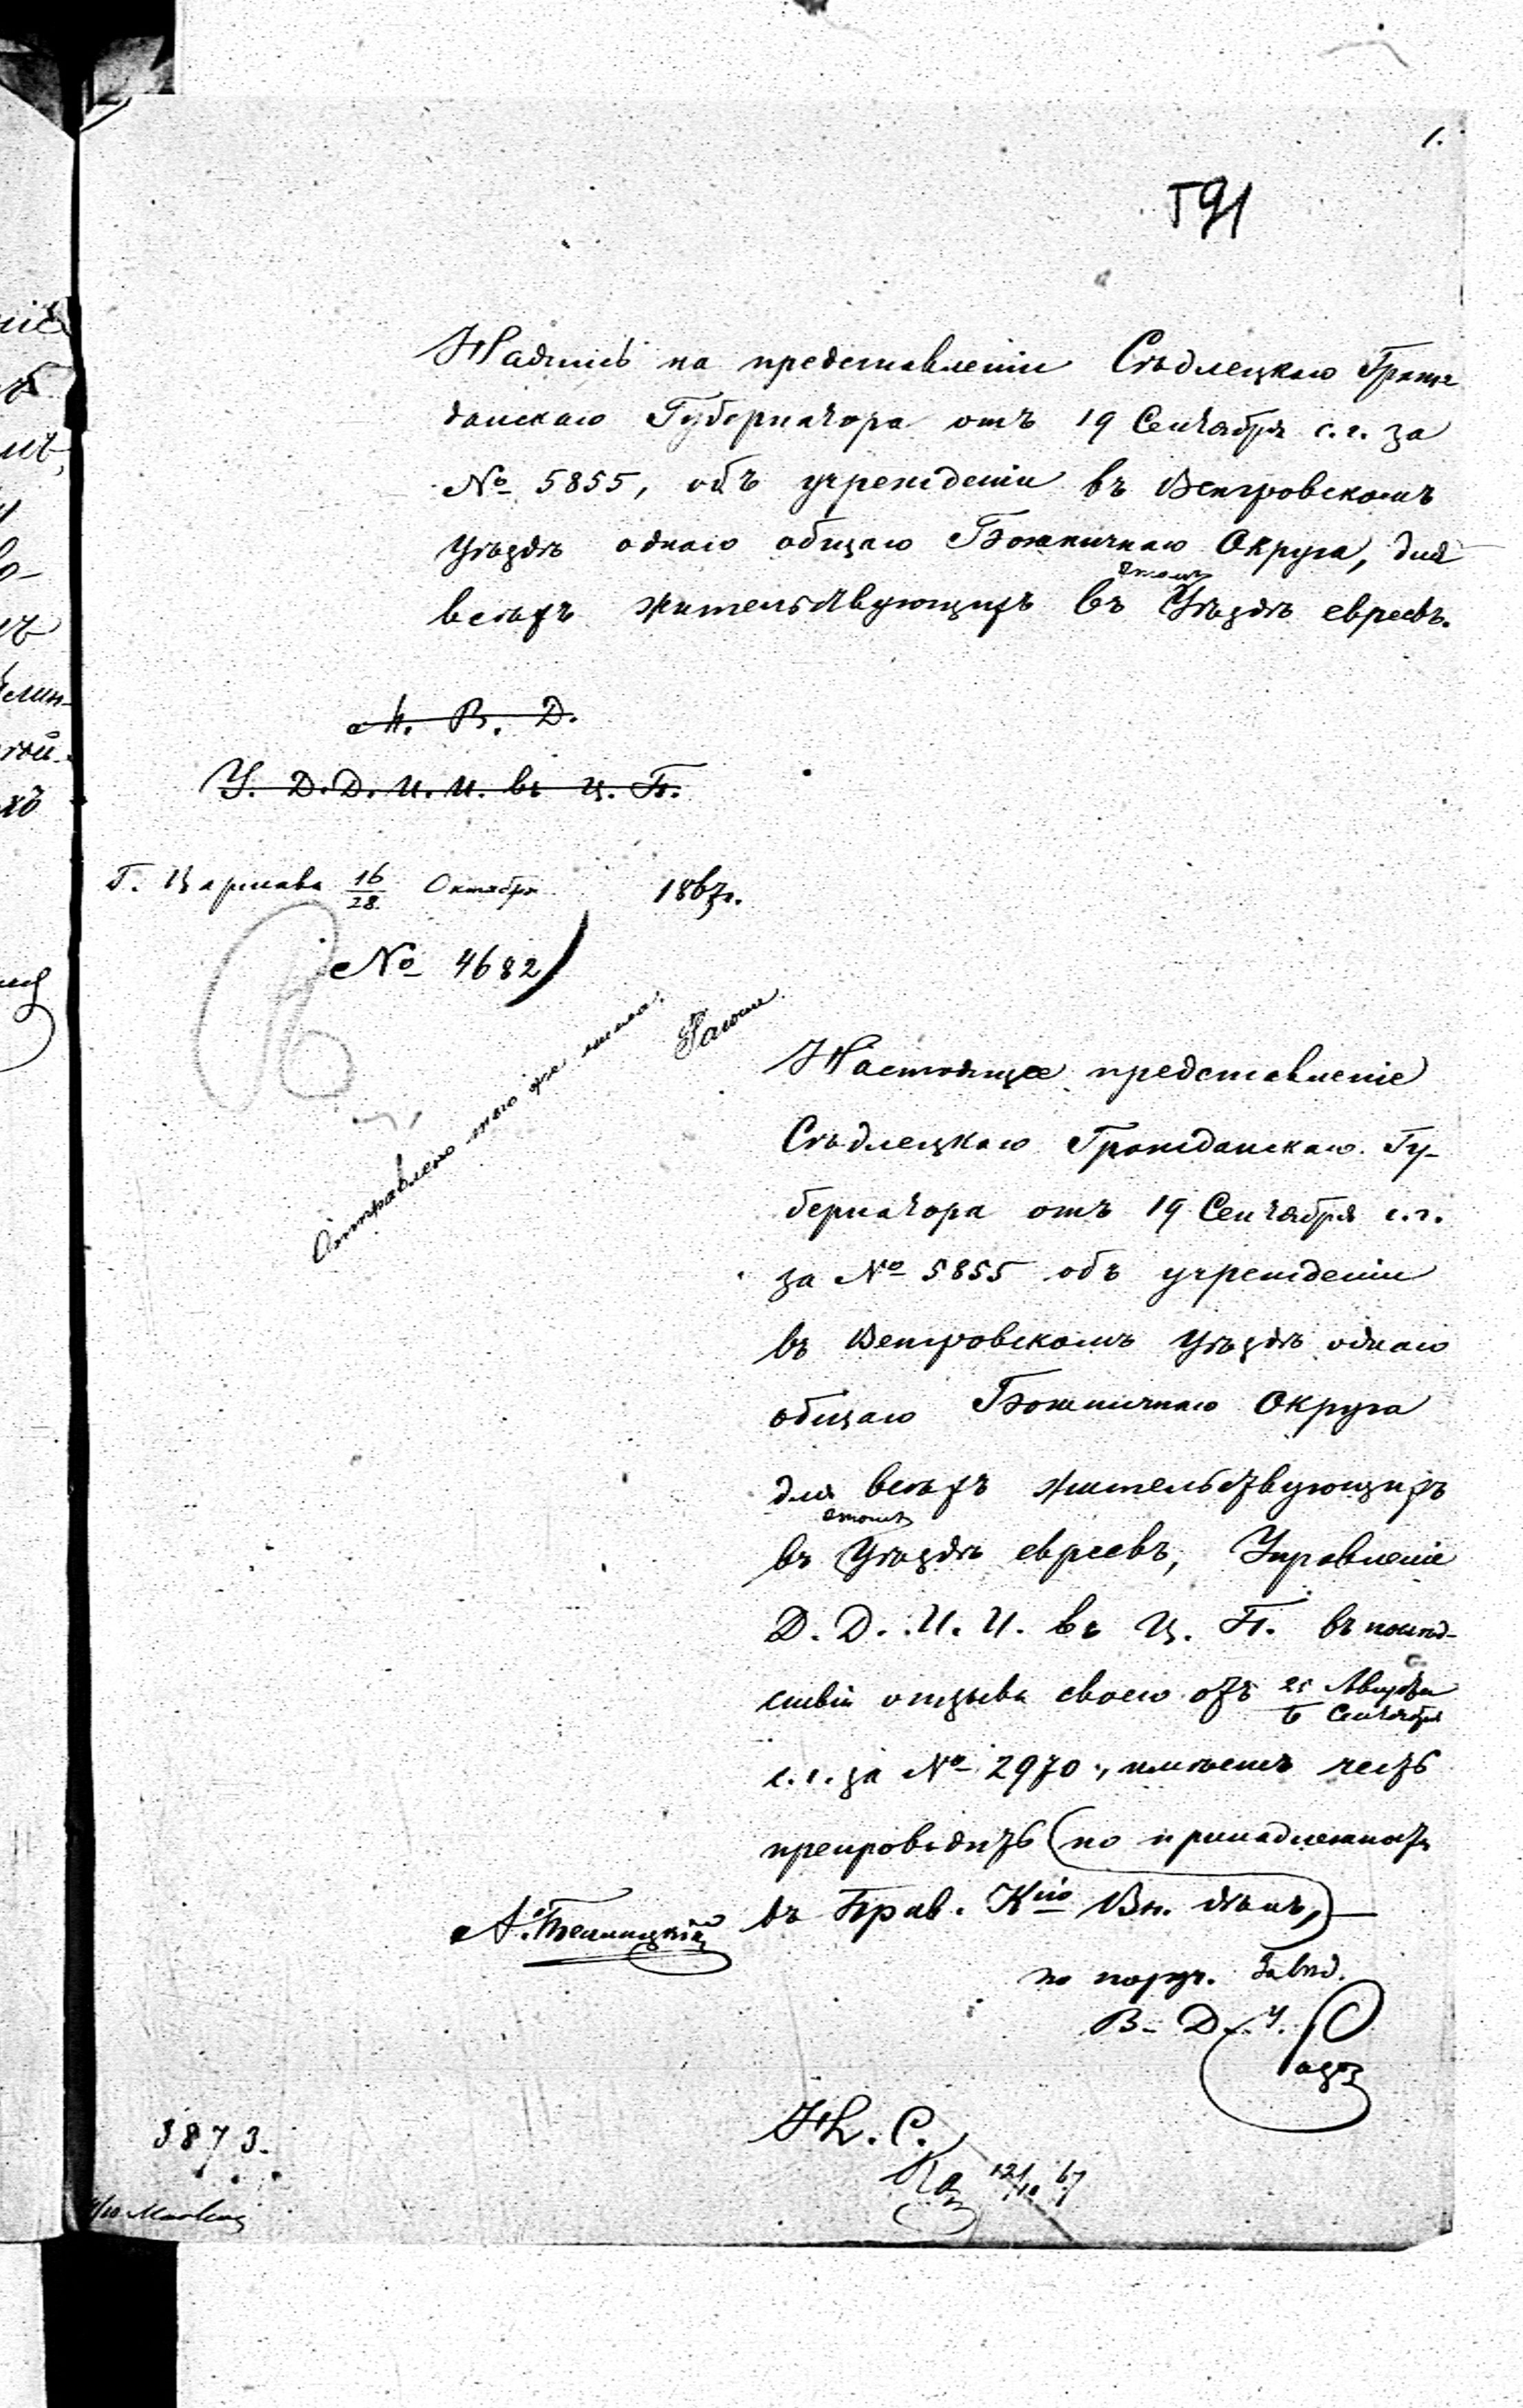 1.
T91
Надпись на представленіи Сѣдлецкаго Граж
данскаго Губернатора отъ 19 Сентября с. г. за
№ 5855, объ учрежденіи въ Венгровскомъ
Уѣздѣ однаго общаго Божничнаго Округа, для
этомъ
всѣхъ жительствующихъ въ Уѣздѣ евреевъ.
М. В. Д.
У. Д. Д. И. И. въ Ц. П.
Г. Варшава 16/28 Октября 1867 г.
№ 4682
Отправлено того же числа.
Настоящее представленіе
Сѣдлецкаго Гражданскаго Гу-
бернатора отъ 19 Сентября с. г.
за № 5855 объ учрежденіи
въ Венгровскомъ Уѣздѣ однаго
общаго Божничнаго Округа
для всѣхъ жительствующихъ
этомъ
въ Уѣздѣ евреевъ, Управленіе
Д. Д. И. И. въ Ц. П. въ послѣд-
ствіи отзыва своего отъ 25 Августа
6 Сентября
с. г. за № 2970, имѣетъ честь
препроводить (по принадлежности
въ Прав. Кію Вн. дѣлъ,)
по поруч. Завѣд.
В. Д. У.
Н. С.
12/10 67
3873.